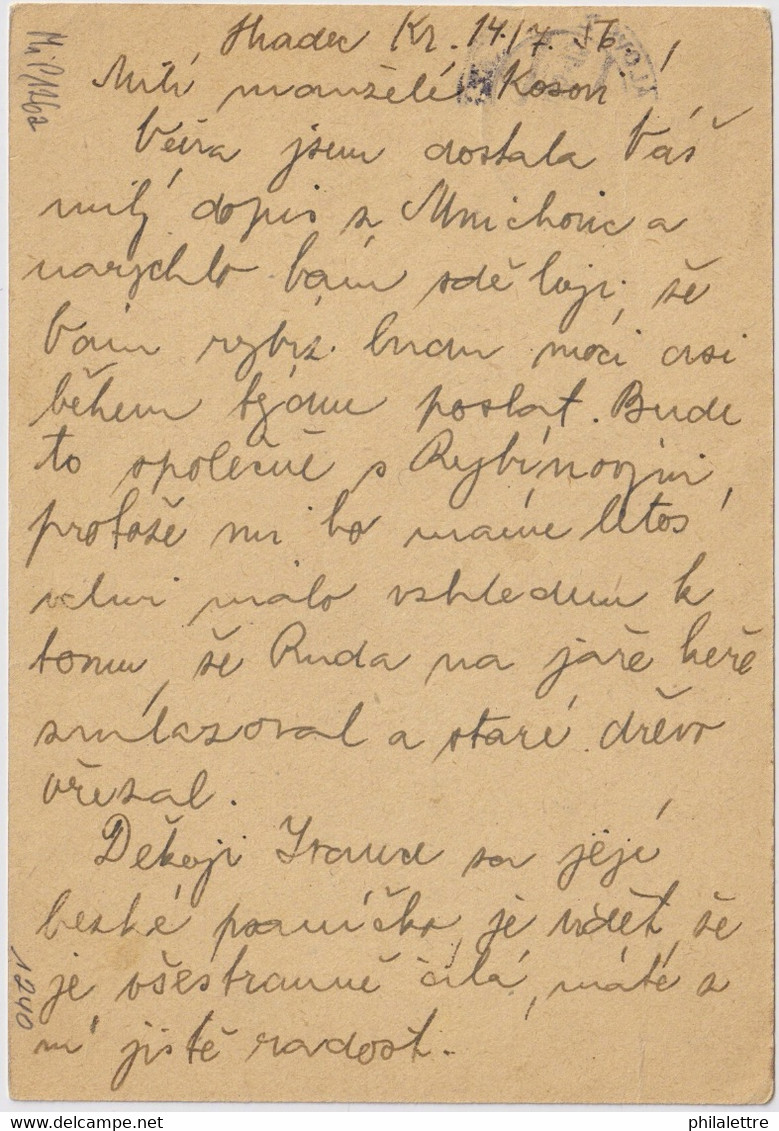 Hradec Kr. 14./7. 56.
Milí manželé Kosovi
Včera jsem dostala Váš
milý dopis z Mnichovic a
narychlo Vám sděluji, že
Vám rybíz budu moci asi
během týdne poslat. Bude
to společně s Rybínovými,
protože mi ho máme letos
velmi málo vzhledem k
tomu, že Ruda na jaře keře
zmlazoval a staré dřevo
vřezal.
Děkuji Ivaně za její
hezké psaníčko, je vidět, že
je všestranně čilá, máte z
ní jistě radost.
Mi P/126a
1240
philalettre